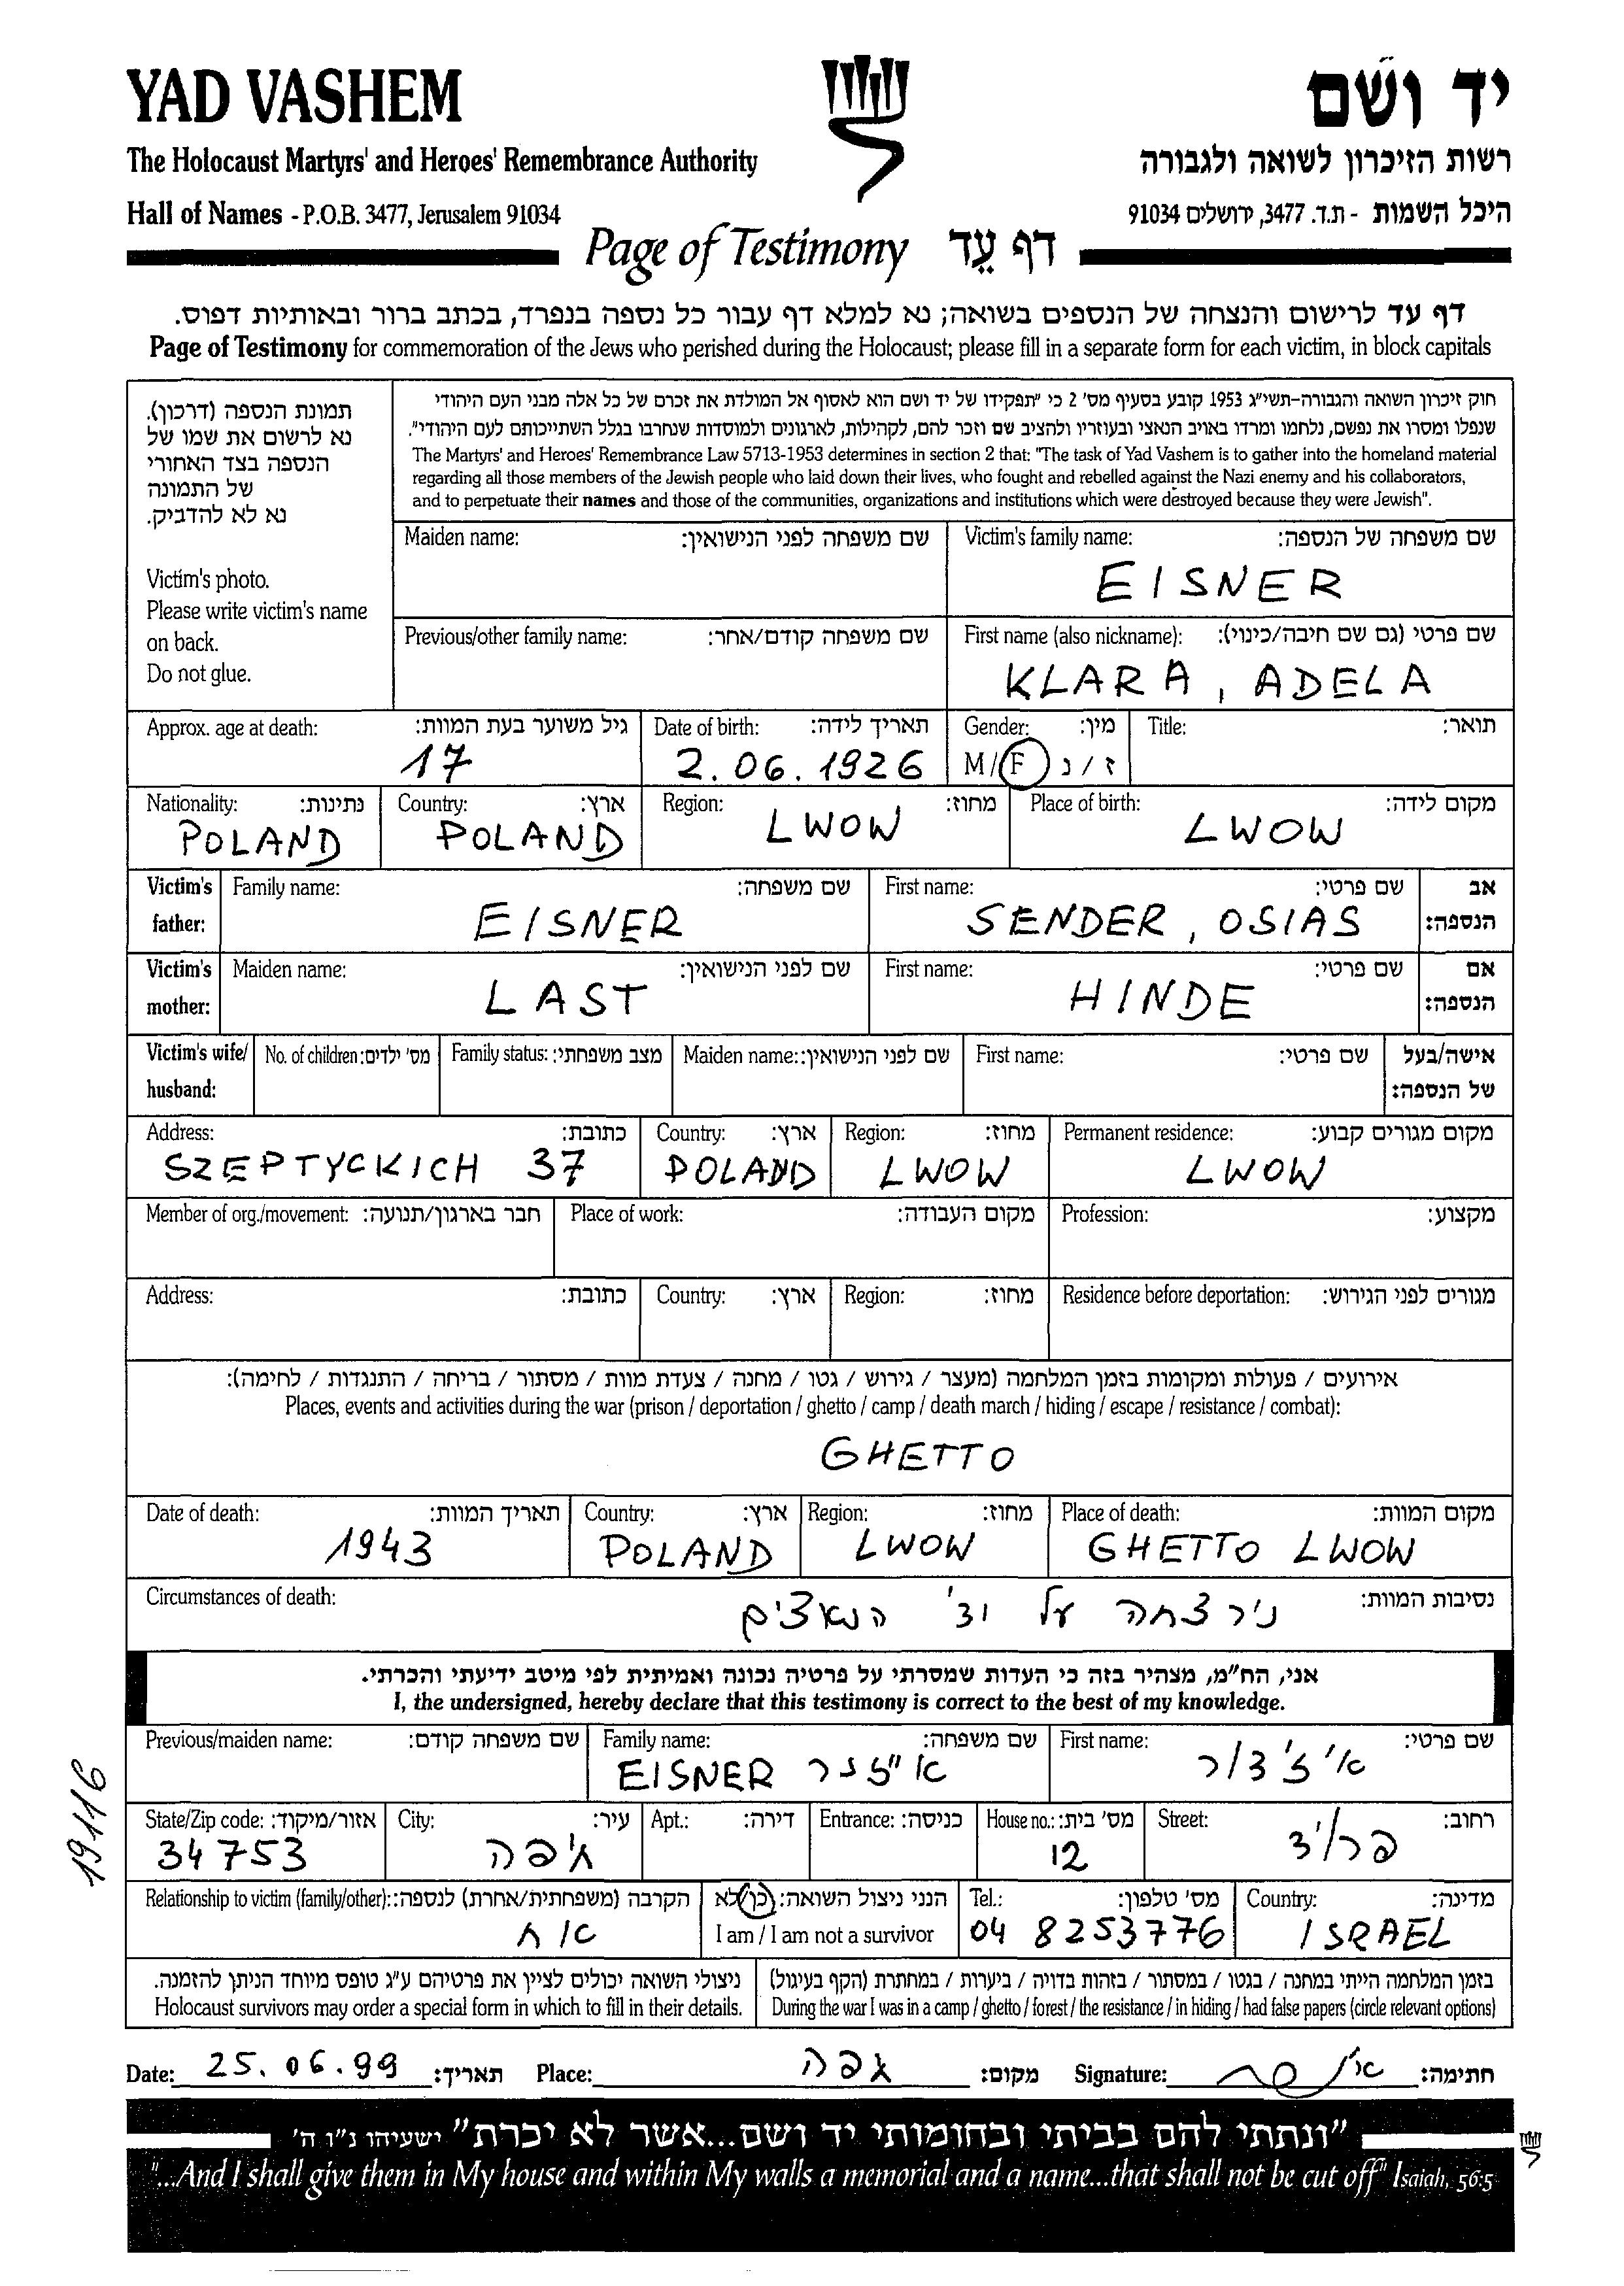 YAD VASHEM
יד ושם
The Holocaust Martyrs' and Heroes' Remembrance Authority
רשות הזיכרון לשואה ולגבורה
Hall of Names - P.O.B. 3477, Jerusalem 91034
היכל השמות - ת.ד. 3477, ירושלים 91034
Page of Testimony דף עֵד
דף עד לרישום והנצחה של הנספים בשואה; נא למלא דף עבור כל נספה בנפרד, בכתב ברור ובאותיות דפוס.
Page of Testimony for commemoration of the Jews who perished during the Holocaust; please fill in a separate form for each victim, in block capitals
תמונת הנספה (דרכון).
נא לרשום את שמו של
הנספה בצד האחורי
של התמונה
נא לא להדביק.
Victim's photo.
Please write victim's name
on back.
Do not glue.
חוק זיכרון השואה והגבורה-תשי"ג 1953 קובע בסעיף מס' 2 כי "תפקידו של יד ושם הוא לאסוף אל המולדת את זכרם של כל אלה מבני העם היהודי
שנפלו ומסרו את נפשם, נלחמו ומרדו באויב הנאצי ובעוזריו ולהציב שם וזכר להם, לקהילות, לארגונים ולמוסדות שנחרבו בגלל השתייכותם לעם היהודי".
The Martyrs' and Heroes' Remembrance Law 5713-1953 determines in section 2 that: "The task of Yad Vashem is to gather into the homeland material
regarding all those members of the Jewish people who laid down their lives, who fought and rebelled against the Nazi enemy and his collaborators,
and to perpetuate their names and those of the communities, organizations and institutions which were destroyed because they were Jewish".
Maiden name: שם משפחה לפני הנישואין: Victim's family name: שם משפחה של הנספה:
EISNER
Previous/other family name: שם משפחה קודם/אחר: First name (also nickname): שם פרטי (גם שם חיבה/כינוי):
KLARA, ADELA
Approx. age at death: גיל משוער בעת המוות: Date of birth: תאריך לידה: Gender: מין: Title: תואר:
17 2.06.1926 M/F ז/נ
Nationality: נתינות: Country: ארץ: Region: מחוז: Place of birth: מקום לידה:
POLAND POLAND LWOW LWOW
Victim's Family name: שם משפחה: First name: שם פרטי: אב
father: EISNER SENDER, OSIAS הנספה:
Victim's Maiden name: שם לפני הנישואין: First name: שם פרטי: אם
mother: LAST HINDE הנספה:
Victim's wife/ No. of children: מס' ילדים: Family status: מצב משפחתי: Maiden name: שם לפני הנישואין: First name: שם פרטי: אישה/בעל
husband: של הנספה:
Address: כתובת: Country: ארץ: Region: מחוז: Permanent residence: מקום מגורים קבוע:
SZEPTYCKICH 37 POLAND LWOW LWOW
Member of org./movement: חבר בארגון/תנועה: Place of work: מקום העבודה: Profession: מקצוע:
Address: כתובת: Country: ארץ: Region: מחוז: Residence before deportation: מגורים לפני הגירוש:
אירועים / פעולות ומקומות בזמן המלחמה (מעצר / גירוש / גטו / מחנה / צעדת מוות / מסתור / בריחה / התנגדות / לחימה):
Places, events and activities during the war (prison / deportation / ghetto / camp / death march / hiding / escape / resistance / combat):
GHETTO
Date of death: תאריך המוות: Country: ארץ: Region: מחוז: Place of death: מקום המוות:
1943 POLAND LWOW GHETTO LWOW
Circumstances of death: נסיבות המוות:
נירצחה על יד' הנאצים
אני, הח"מ, מצהיר בזה כי העדות שמסרתי על פרטיה נכונה ואמיתית לפי מיטב ידיעתי והכרתי.
I, the undersigned, hereby declare that this testimony is correct to the best of my knowledge.
Previous/maiden name: שם משפחה קודם: Family name: שם משפחה: First name: שם פרטי:
EISNER אייזנר
State/Zip code: אזור/מיקוד: City: עיר: Apt.: דירה: Entrance: כניסה: House no.: מס' בית: Street: רחוב:
34753 חיפה 12
Relationship to victim (family/other): הקרבה (משפחתית/אחרת) לנספה: הנני ניצול השואה: כן/לא Tel.: מס' טלפון: Country: מדינה:
אח I am / I am not a survivor 04 8253776 ISRAEL
ניצולי השואה יכולים לציין את פרטיהם ע"ג טופס מיוחד הניתן להזמנה.
Holocaust survivors may order a special form in which to fill in their details.
בזמן המלחמה הייתי במחנה / בגטו / במסתור / בזהות בדויה / ביערות / במחתרת (הקף בעיגול)
During the war I was in a camp / ghetto / forest / the resistance / in hiding / had false papers (circle relevant options)
Date: 25.06.99 תאריך: Place: חיפה מקום: Signature: חתימה:
"ונתתי להם בביתי ובחומותי יד ושם...אשר לא יכרת" ישעיהו נ"ו ה'
"...And I shall give them in My house and within My walls a memorial and a name...that shall not be cut off" Isaiah, 56:5
19116